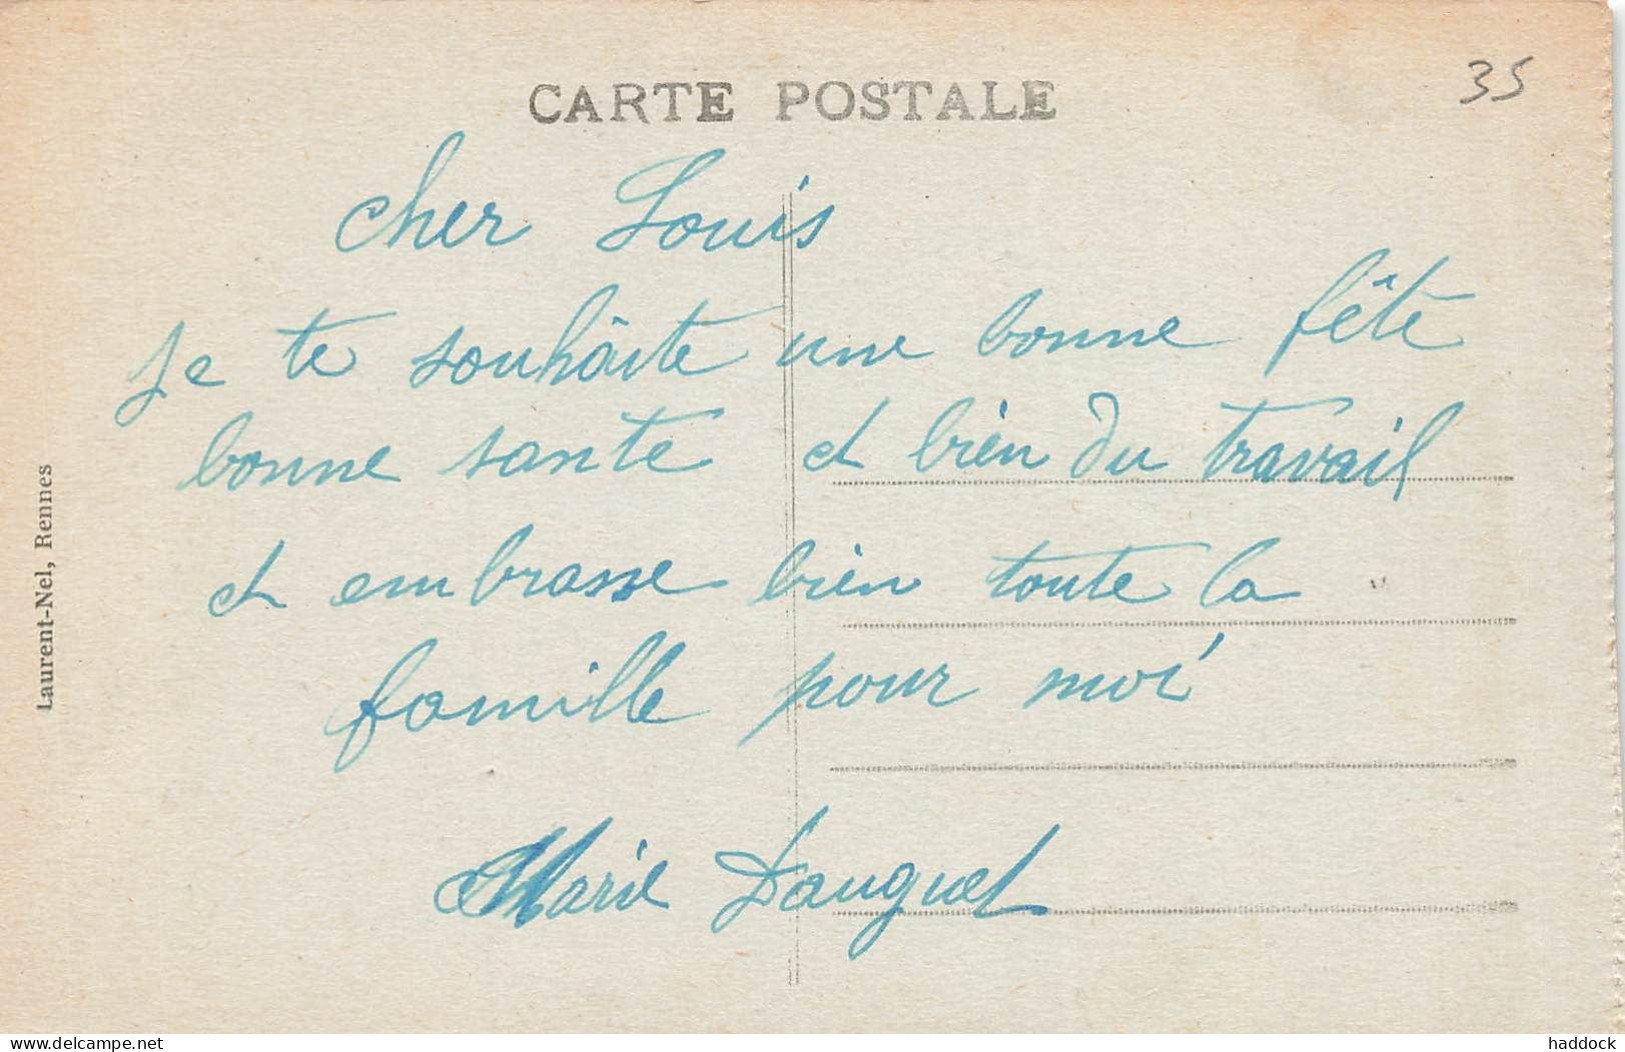 CARTE POSTALE
35
cher Louis
je te souhaite une bonne fête
bonne sante et bien du travail
et embrasse bien toute la
famille pour moi
Marie Dauguet
Laurent-Nel, Rennes
www.delcampe.net
haddock